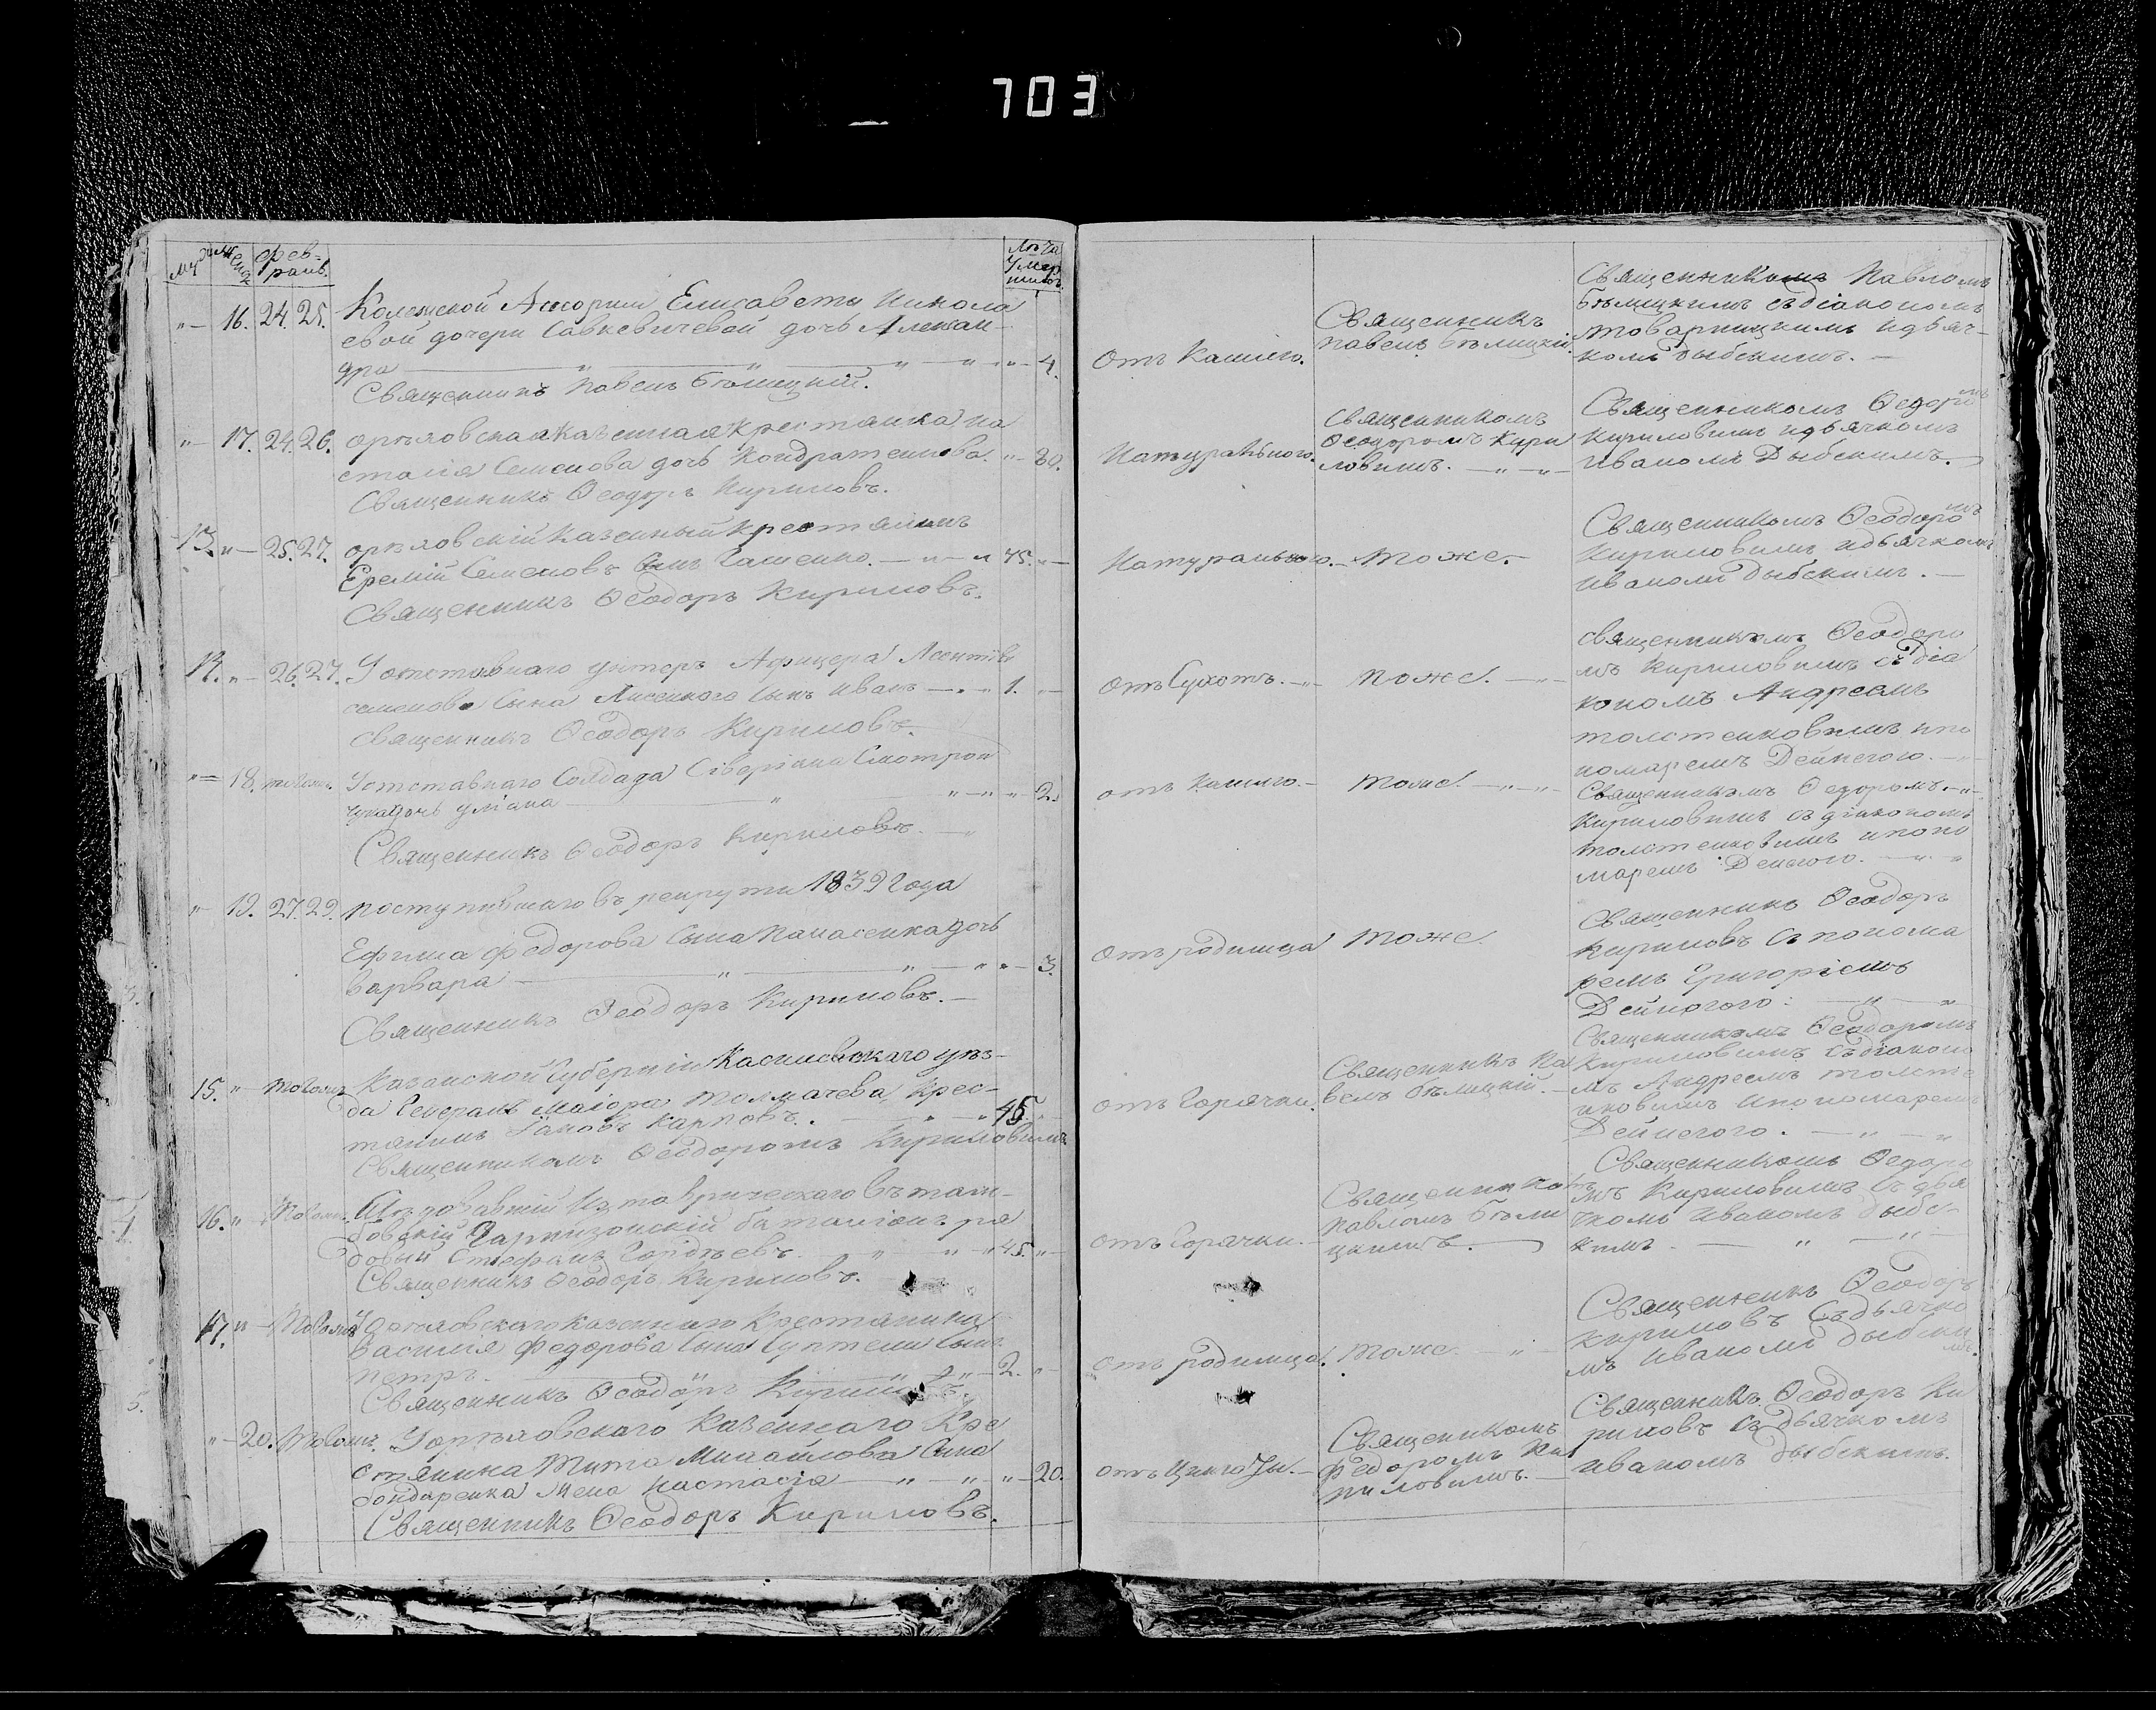 703
муж женск
фев-
раль.
Лѣта
Умер
шихъ.
"— 16. 24. 25. Колежской Ассорши Елисавети Никола
евой дочери Савкевичевой дочь Алексан-
дра — " — " — " — " — 4.
Священникъ Павелъ Бѣлицкій.
отъ Кашлю.
Священникъ
Павелъ Бѣлицкій.
Священникомъ Павломъ
Бѣлицкимъ съ діакономъ
идьяч-
комъ Дыбскимъ. —
"— 17. 24. 26. орѣховская казенная крестянка На
стасія Семенова дочь Кондратенкова. "— 30.
Священникъ Ѳеодоръ Кириловъ.
Натуральною.
Священникомъ
Ѳеодоромъ Кири
ловимъ. — " — "
Священникомъ Ѳедоромъ
Кириловимъ идьячкомъ
Иваномъ Дыбскимъ.
13. "— 25. 27. орѣховскій казенный крестянинъ
Еремій Семеновъ Сынъ Гашенко. — " — " 75. "—
Священникъ Ѳеодоръ Кириловъ.
Натуральною. — Тоже. —
Священникомъ Ѳеодоромъ
Кириловимъ идьячкомъ
Иваномъ Дыбскимъ. —
14. "— 26. 27. У отставнаго унтеръ Афицера
семенова Сына Лисенкого Сынъ Иванъ — " — " 1. "—
Священникъ Ѳеодоръ Кириловъ.
отъ Сухотъ. — " Тоже. — "
Священникомъ Ѳеодоро
мъ Кириловимъ съ діа
кономъ Андреемъ
толстенковимъ ипо
номаремъ Дейнегою. — "
"— 18. тогожъ. Уотставнаго Солдата
дочь — " — " — " — 2.
Священникъ Ѳеодоръ Кириловъ. — "
отъ Кашлю. — Тоже. — " — "
Священникомъ Ѳедоромъ. — "
Кириловимъ съ діакономъ
толстенковимъ ипоно
маремъ Денегою. — " — "
"— 19. 27. 29. поступившаго въ рекрути 1839 Года
Ефима Федорова Сына Панасенка дочь
Варвара — " — " — " — " — 3.
Священникъ Ѳеодоръ Кириловъ. —
отъ родимца Тоже.
Священникъ Ѳеодоръ
Кириловъ съ понома
ремъ Григоріемъ
Дейногого. — " — "
15. " тогожъ Казанской Губерніи уѣз-
да Генералъ Маіора Толмачева Крес-
тянинъ Іаковъ Карповъ. — " — " 45. "
Священникомъ Ѳеодоромъ Кириловимъ
отъ Горячки.
Священникъ Па
велъ Бѣлицкій. —
Священникомъ Ѳеодоромъ
Кириловимъ съ діаконо
мъ Андреемъ толсте
нковимъ ипономаремъ
Дейнегого. — " — "
16. " тогожъ. Изтаврическаго въ там-
бовскій Гарнизонскій баталіонъ ря
довый Стефанъ Гордѣевъ. " — " — " 45. "—
Священникъ Ѳеодоръ Кириловъ.
отъ Горячки. —
Священникомъ
Павломъ Бѣли
цкимъ.
Священникомъ Ѳедоро
мъ Кириловимъ съ дья
чкомъ Иваномъ Дыбс-
кимъ. — " — " —
17. " — тогожъ Уорѣховскаго казеннаго Крестянина
Василія Федорова Сына Сынъ
Петръ. — " — " — 2. "
Священникъ Ѳеодоръ
отъ родимца. Тоже. — "
Священникъ Ѳеодоръ
Кириловъ съ дьячко
мъ Иваномъ Дыбски
мъ.
"— 20. тогожъ. Уорѣховского Казеннаго Кре
стянина Тита Михайлова Сина
Бондаренка Жена Настасія — " — " — " — 20.
Священникъ Ѳеодоръ Кириловъ.
отъ Цинготы. —
Священикомъ
Федоромъ Ки
риловимъ. —
Священникъ Ѳеодоръ Ки
риловъ съ дьячкомъ
Иваномъ Дыбскимъ.